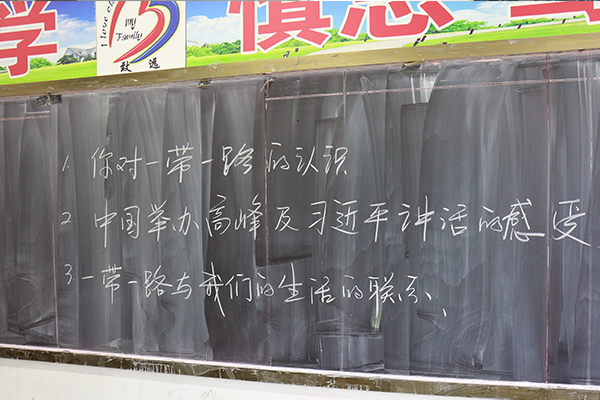 学 慎思
I love
my
Family
致远
1. 你对一带一路的认识
2. 中国举办高峰及习近平讲话的感受
3 一带一路与我们的生活的联系、